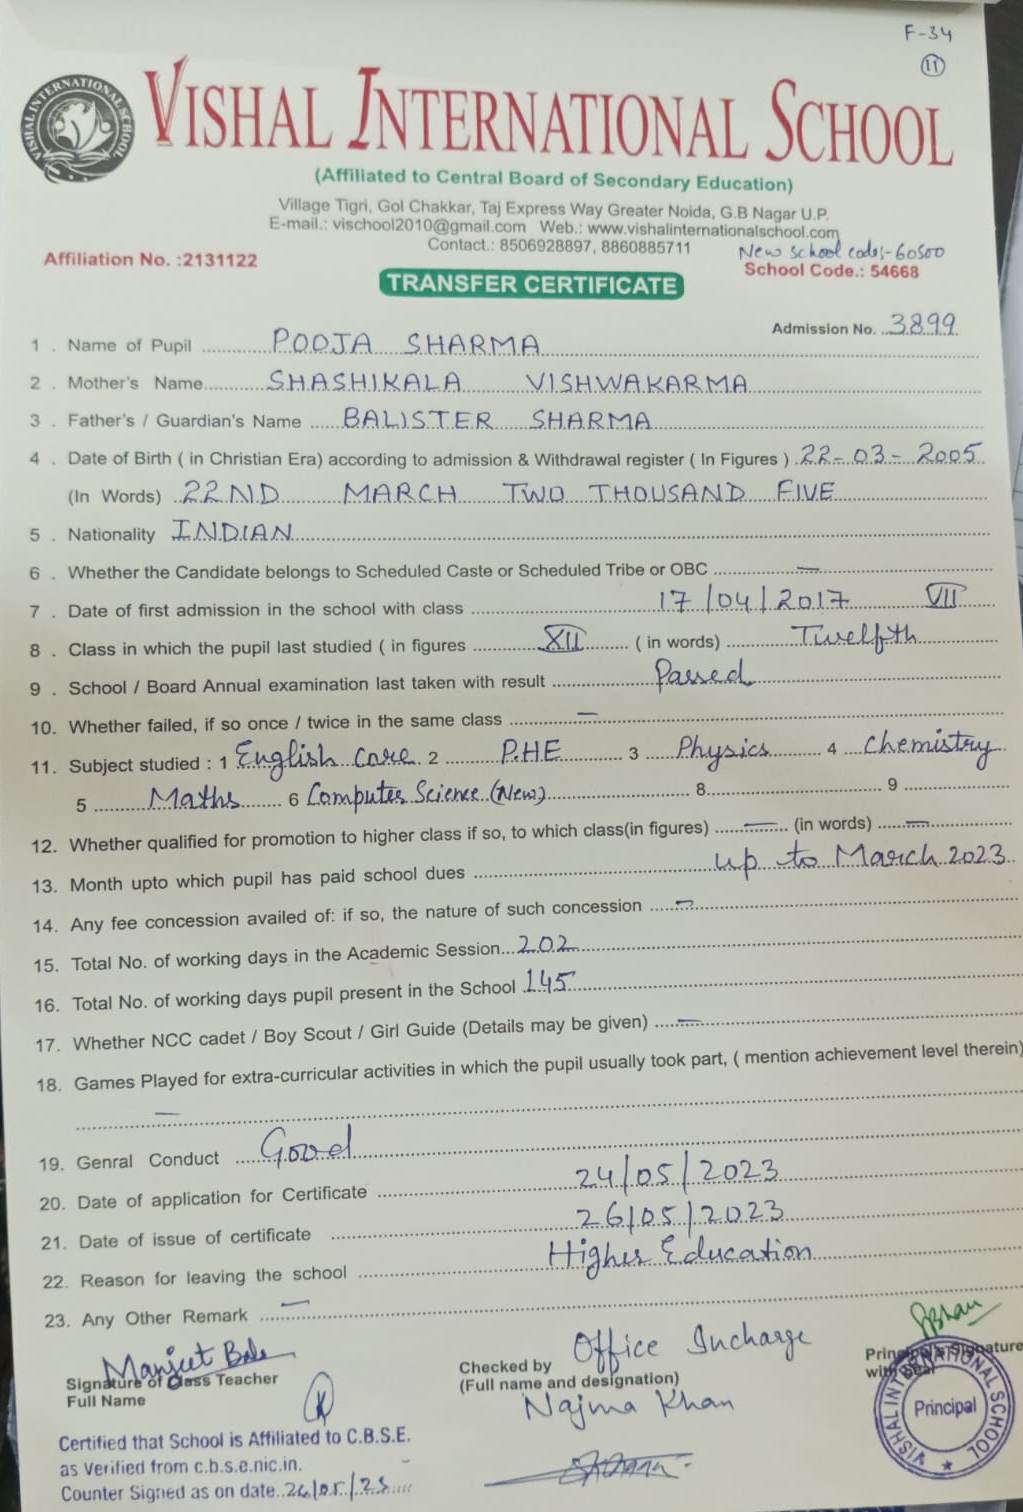 F-34
11
VISHAL INTERNATIONAL SCHOOL
VISHAL INTERNATIONAL SCHOOL
(Affiliated to Central Board of Secondary Education)
Village Tigri, Gol Chakkar, Taj Express Way Greater Noida, G.B Nagar U.P.
E-mail.: vischool2010@gmail.com Web.: www.vishalinternationalschool.com
Contact.: 8506928897, 8860885711
New school code:-60500
Affiliation No. :2131122 School Code.: 54668
TRANSFER CERTIFICATE
Admission No. 3899
1 . Name of Pupil POOJA SHARMA
2 . Mother's Name SHASHIKALA VISHWAKARMA
3 . Father's / Guardian's Name BALISTER SHARMA
4 . Date of Birth ( in Christian Era) according to admission & Withdrawal register ( In Figures ) 22-03-2005
(In Words) 22ND MARCH TWO THOUSAND FIVE
5 . Nationality INDIAN
6 . Whether the Candidate belongs to Scheduled Caste or Scheduled Tribe or OBC —
7 . Date of first admission in the school with class 17/04/2017 VII
8 . Class in which the pupil last studied ( in figures XII ( in words) Twelfth
9 . School / Board Annual examination last taken with result Passed
10. Whether failed, if so once / twice in the same class —
11. Subject studied : 1 English Core 2 P.HE 3 Physics 4 Chemistry
5 Maths 6 Computer Science (New) 8 9
12. Whether qualified for promotion to higher class if so, to which class(in figures) — (in words) —
13. Month upto which pupil has paid school dues up to March 2023
14. Any fee concession availed of: if so, the nature of such concession —
15. Total No. of working days in the Academic Session 202
16. Total No. of working days pupil present in the School 145
17. Whether NCC cadet / Boy Scout / Girl Guide (Details may be given) —
18. Games Played for extra-curricular activities in which the pupil usually took part, ( mention achievement level therein)
—
19. Genral Conduct Good
20. Date of application for Certificate 24/05/2023
21. Date of issue of certificate 26/05/2023
22. Reason for leaving the school Higher Education
23. Any Other Remark —
Manjeet
Signature of Class Teacher
Full Name
Checked by Office Incharge
(Full name and designation)
Najma Khan
Principal's Signature
with Seal
VISHAL INTERNATIONAL SCHOOL
Principal
Certified that School is Affiliated to C.B.S.E.
as Verified from c.b.s.e.nic.in.
Counter Signed as on date 26/05/23